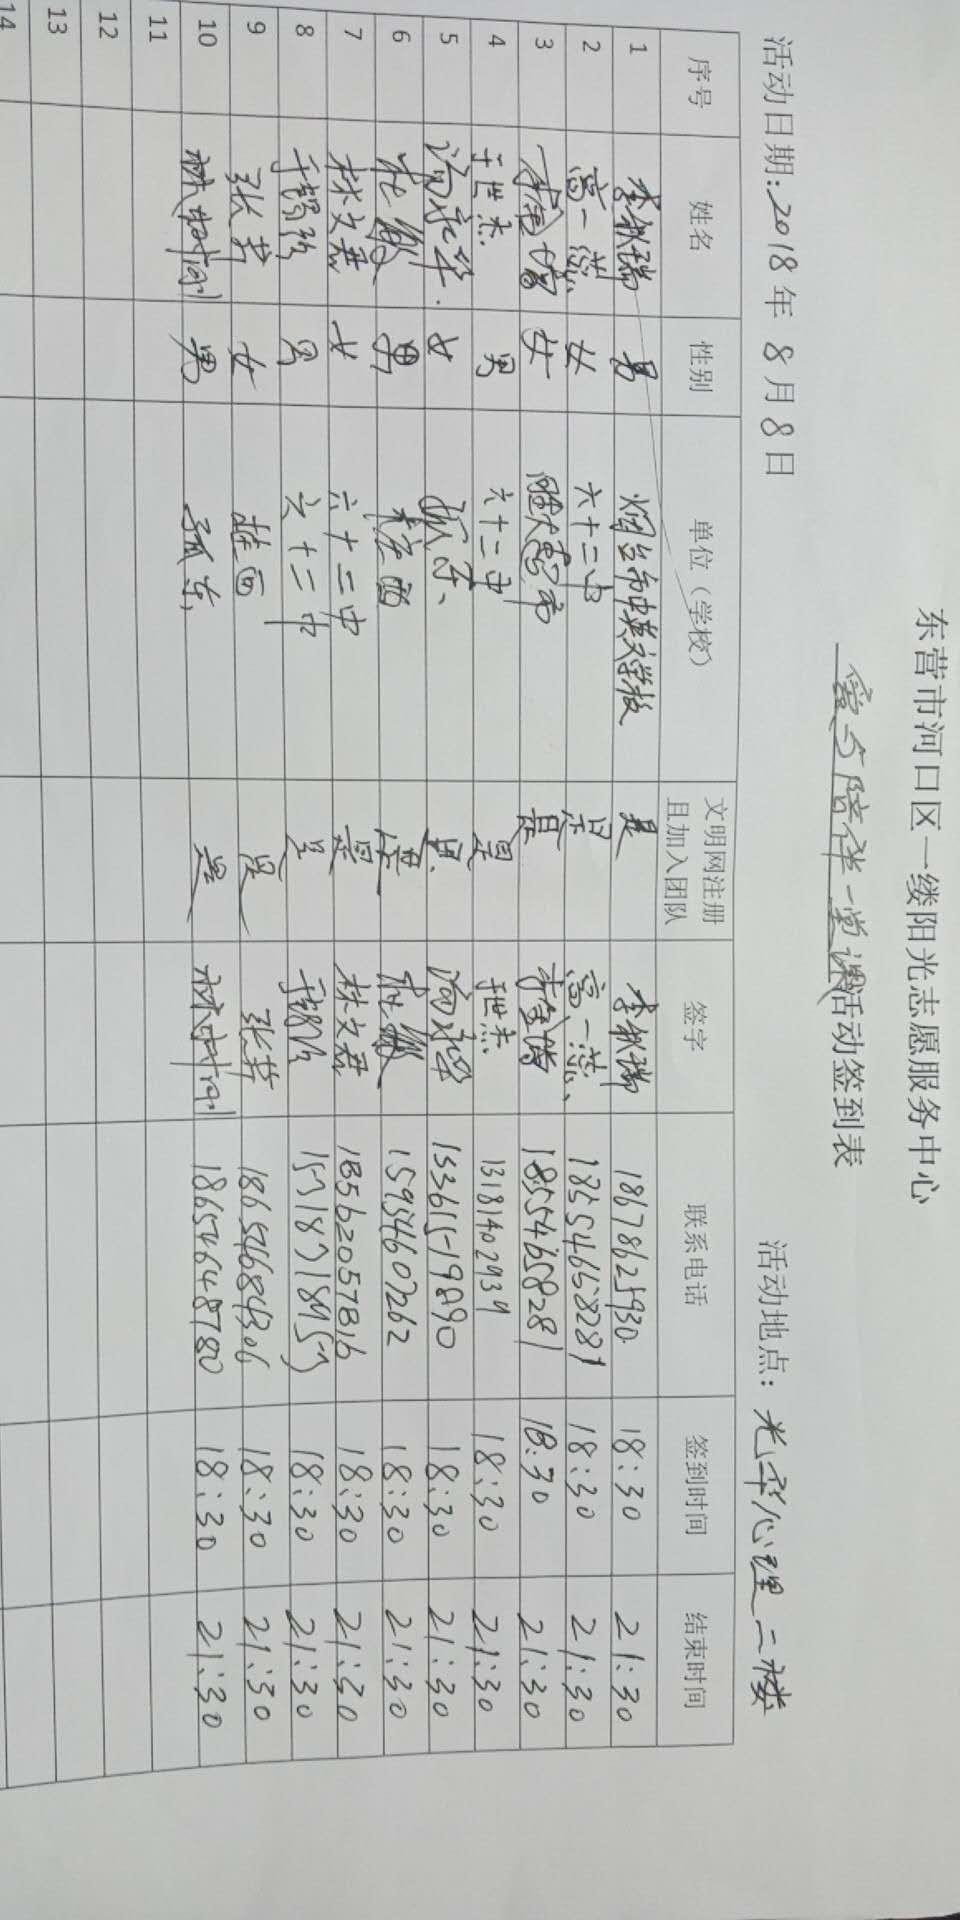 东营市河口区一缕阳光志愿服务中心
爱与陪伴一堂课活动签到表
活动日期:2018年8月8日 活动地点:光华心理二楼
序号 姓名 性别 单位(学校) 文明网注册且加入团队 签字 联系电话 签到时间 结束时间
1 男 烟台市中英文学校 是 18678625930 18:30 21:30
2 高一蕊 女 六十二中 是 高一蕊 18:30 21:30
3 女 是 18554658281 18:30 21:30
4 于世杰 男 六十二中 是 于世杰 13181402939 18:30 21:30
5 女 孤东 是 13361519890 18:30 21:30
6 杜敏 男 是 杜敏 15954607262 18:30 21:30
7 林文君 女 六十二中 是 林文君 18562057816 18:30 21:30
8 男 六十二中 是 18:30 21:30
9 张苇 女 是 张苇 18654684306 18:30 21:30
10 男 孤东 是 18654648780 18:30 21:30
11
12
13
14